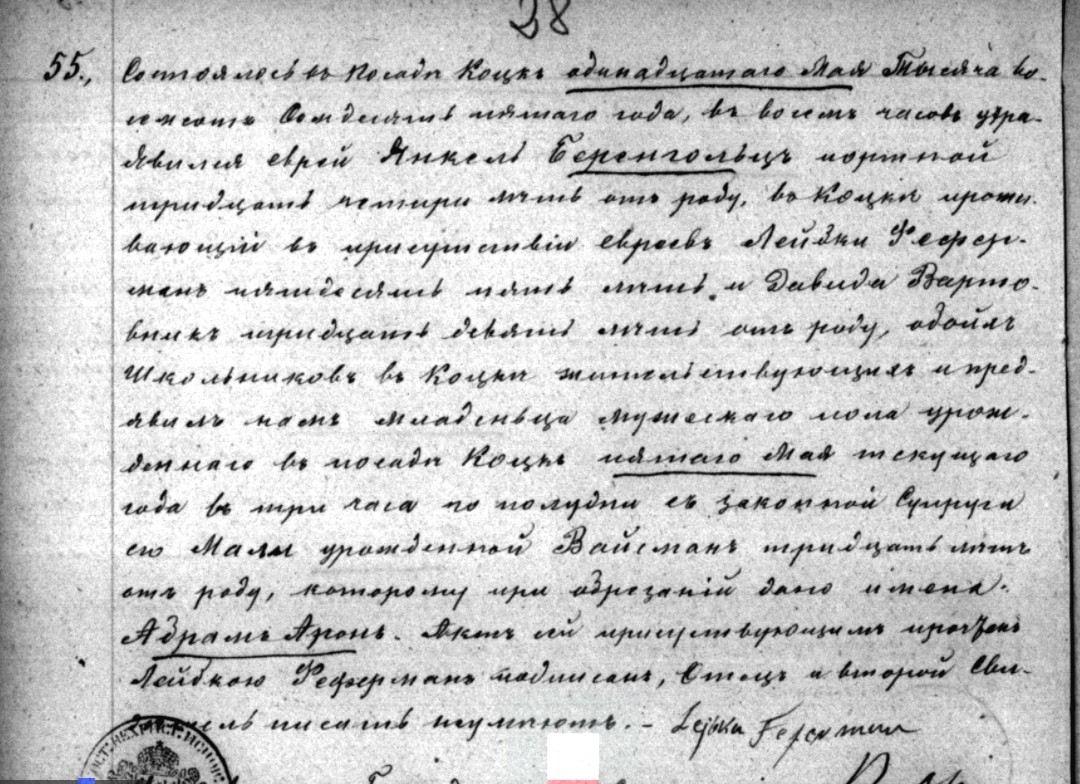 28
55., Состоялось въ посадѣ Коцкъ одинадцатаго Мая Тысяча во-
семсотъ Семдесятъ пятаго года, въ восемъ часовъ утра
Явился еврей Янкель Беренгольцъ портной
тридцать четыри лѣтъ отъ роду, въ Коцкѣ прожи-
вающій въ присутствіи евреевъ Лейбки Фефер-
манъ пятдесятъ пять лѣтъ и Давида Варто-
вникъ тридцать девять лѣтъ отъ роду, обоихъ
Школьниковъ въ Коцкѣ жительствующихъ и пред-
явилъ намъ младеньца мужескаго пола урож-
деннаго въ посадѣ Коцкъ пятаго Мая текущаго
года въ три часа по полудни съ законной Супруги
его Малы урожденной Вайсманъ тридцать лѣтъ
отъ роду, которому при обрезаніи дано имена
Абрамъ Аронъ. Актъ сей присутствующимъ прочтенъ
Лейбкою Феферманъ подписанъ, Отецъ и второй Сви-
дѣтель писать неумѣютъ. –